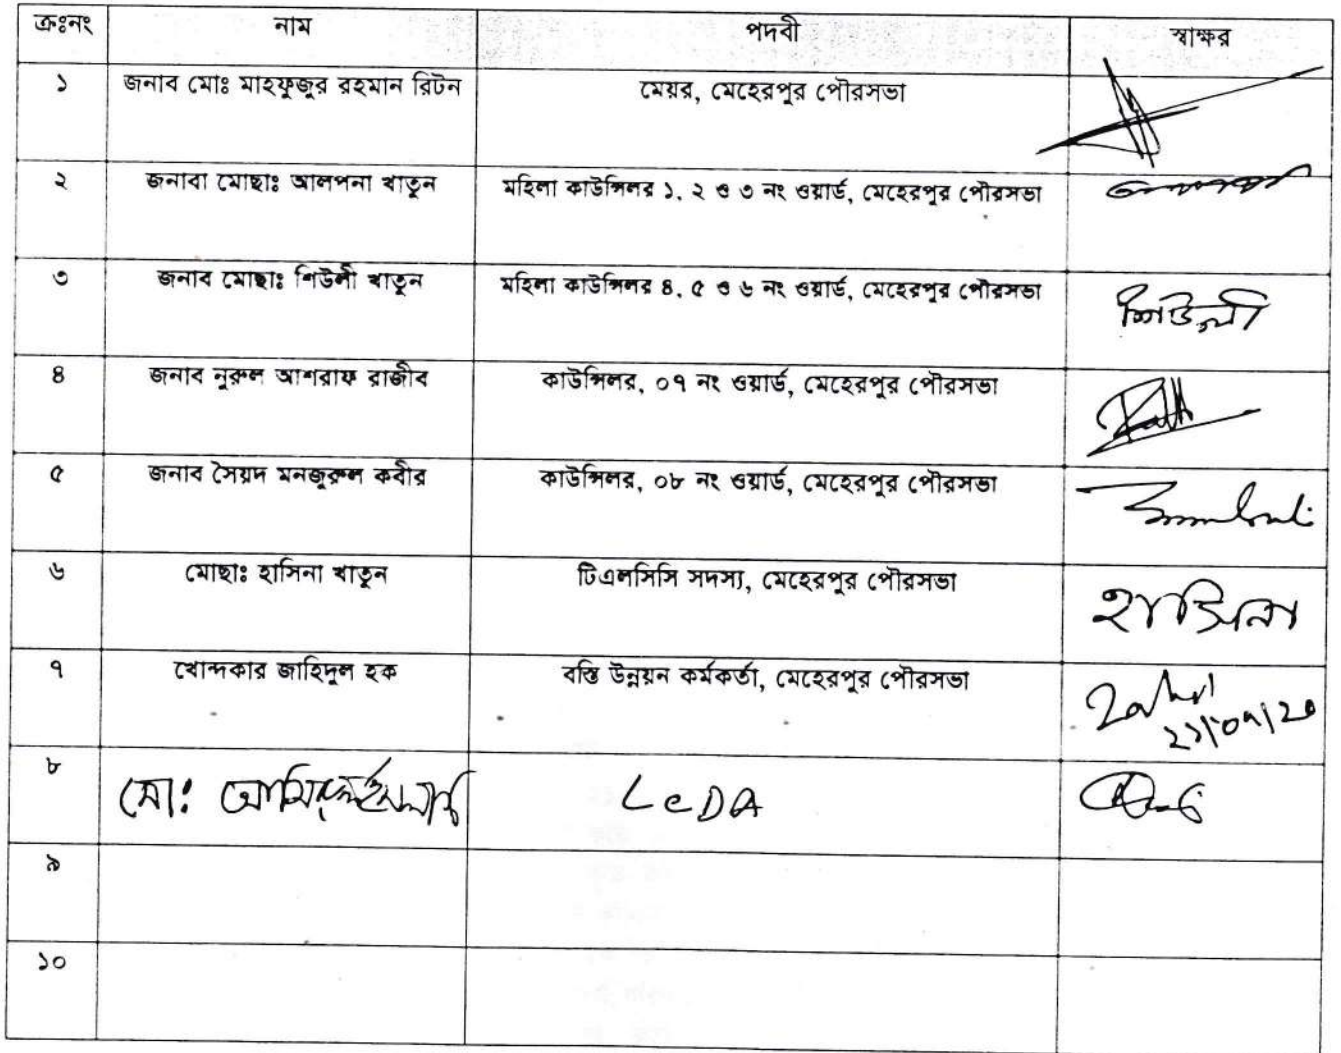 ক্রঃনং নাম পদবী স্বাক্ষর
১ জনাব মোঃ মাহফুজুর রহমান রিটন মেয়র, মেহেরপুর পৌরসভা
২ জনাবা মোছাঃ আলপনা খাতুন মহিলা কাউন্সিলর ১, ২ ও ৩ নং ওয়ার্ড, মেহেরপুর পৌরসভা
৩ জনাব মোছাঃ শিউলী খাতুন মহিলা কাউন্সিলর ৪, ৫ ও ৬ নং ওয়ার্ড, মেহেরপুর পৌরসভা শিউলী
৪ জনাব নুরুল আশরাফ রাজীব কাউন্সিলর, ০৭ নং ওয়ার্ড, মেহেরপুর পৌরসভা
৫ জনাব সৈয়দ মনজুরুল কবীর কাউন্সিলর, ০৮ নং ওয়ার্ড, মেহেরপুর পৌরসভা
৬ মোছাঃ হাসিনা খাতুন টিএলসিসি সদস্য, মেহেরপুর পৌরসভা হাসিনা
৭ খোন্দকার জাহিদুল হক বস্তি উন্নয়ন কর্মকর্তা, মেহেরপুর পৌরসভা
৮ মো: LeDA
৯
১০